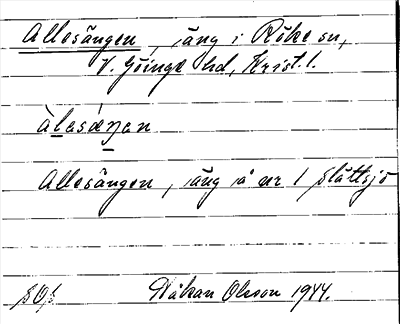 Allesängen, äng i Röke sn,
V. Göinge hd, Krist. l.
àlasæ̀ŋan
Allesängen, äng å nr 1 Slättsjö
Håkan Olsson 1944.